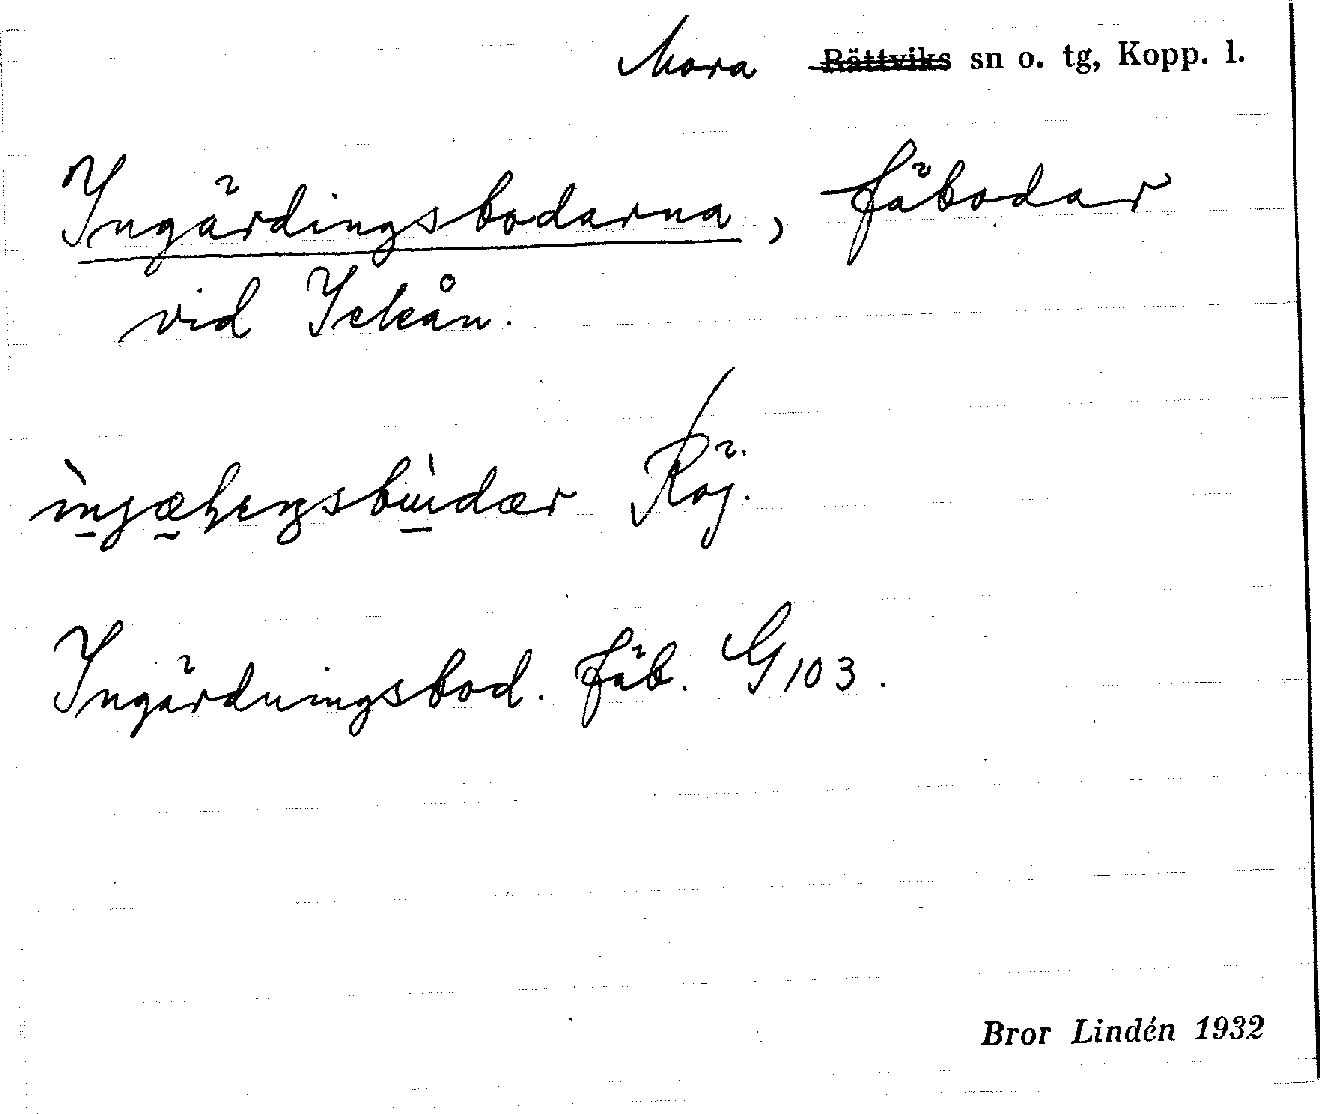 Mora Rättviks sn o. tg, Kopp. l.
Ingärdingsbodarna, fäbodar
vid Ickån.
Röj.
Ingärdningsbod. fäb. G 103.
Bror Lindén 1932